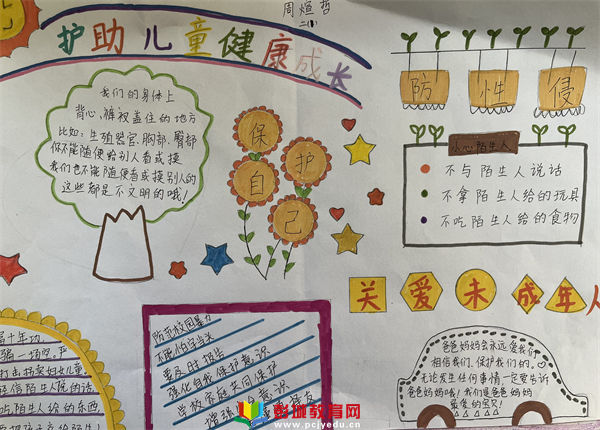 周煊哲
二(1)
护助儿童健康成长
防性侵
我们的身体上
背心、裤衩盖住的地方
比如:生殖器官、胸部、臀部
你不能随便给别人看或摸
我们也不能随便看或摸别人的
这些都是不文明的哦!
保护
自己
小心陌生人
不与陌生人说话
不拿陌生人给的玩具
不吃陌生人给的食物
关爱未成年人
防范校园暴力
不要怕害羞
要及时报告
强化自我保护意识
学校家庭共同保护
爸爸妈妈会永远爱我们
相信我们、保护我们的。
无论发生任何事情一定要告诉
爸爸妈妈哦!我们是爸爸妈妈
最爱的宝贝!
打击拐卖妇女儿童
轻信陌生人说的话
吃陌生人给的东西
彭城教育网
www.pcjyedu.cn